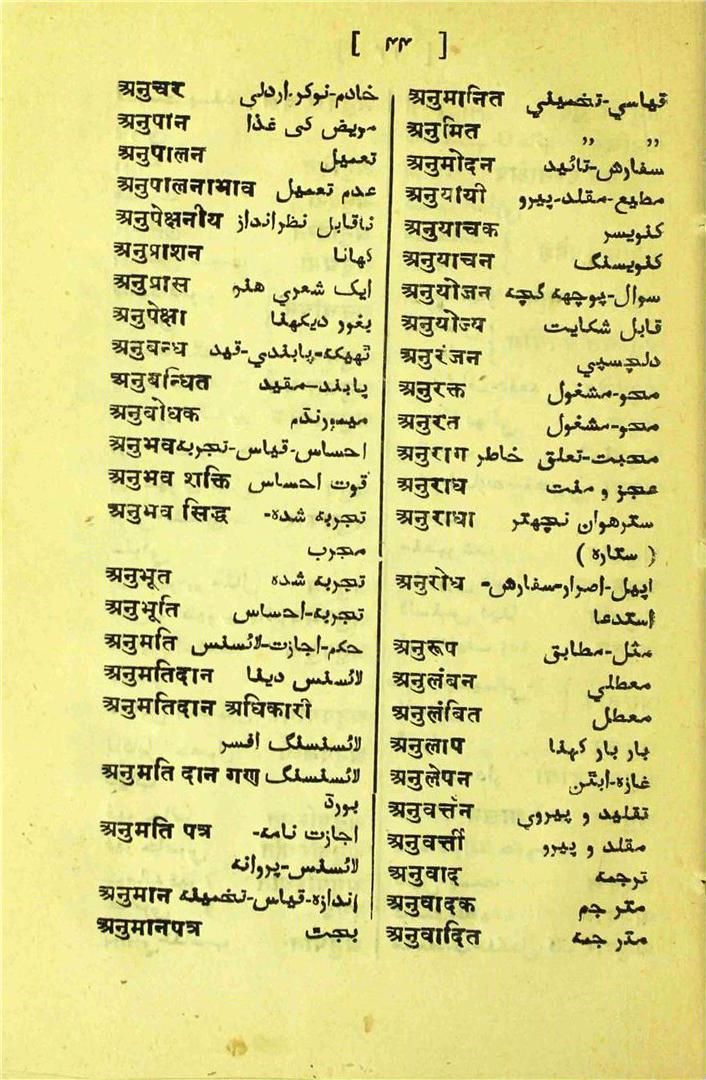 [ ۴۴ ]
अनुचर خادم-نوکر-اردلی
अनुपान مریض کی غذا
अनुपालन تعمیل
अनुपालनाभाव عدم تعمیل
अनुपेक्षनीय ناقابل نظرانداز
अनुप्राशन کھانا
अनुप्रास ایک شعری هنر
अनुपेक्षा بغور دیکھنا
अनुबन्ध ٹھیکہ-پابندی-قید
अनुबन्धित پابند-مقید
अनुबोधक میمورنڈم
अनुभव احساس-قیاس-تجربہ
अनुभव शक्ति قوت احساس
अनुभव सिद्ध تجربہ شدہ-
مجرب
अनुभूत تجربہ شدہ
अनुभूति تجربہ-احساس
अनुमति حکم-اجازت-لائسنس
अनुमतिदान لائسنس دینا
अनुमतिदान अधिकारी
لائسنسنگ افسر
अनुमति दान गण لائسنسنگ
بورڈ
अनुमति पत्र اجازت نامہ-
لائسنس-پروانہ
अनुमान اندازہ-قیاس-تخمینہ
अनुमानपत्र بجت
अनुमानित قیاسی-تخمینی
अनुमित ,, ,,
अनुमोदन سفارش-تائید
अनुयायी مطیع-مقلد-پیرو
अनुयाचक کنویسر
अनुयाचन کنویسنگ
अनुयोजन سوال-پوچھہ گچھہ
अनुयोज्य قابل شکایت
अनुरंजन دلچسپی
अनुरक्त محو-مشغول
अनुरत محو-مشغول
अनुराग محبت-تعلق خاطر
अनुराध عجز و منت
अनुराधा سترھواں نچھتر
( ستارہ )
अनुरोध اپیل-اصرار-سفارش-
استدعا
अनुरूप مثل-مطابق
अनुलंबन معطلی
अनुलंबित معطل
अनुलाप بار بار کہنا
अनुलेपन غازہ-ابٹن
अनुवर्त्तन تقلید و پیروی
अनुवर्त्ती مقلد و پیرو
अनुवाद ترجمہ
अनुवादक مترجم
अनुवादित مترجمہ